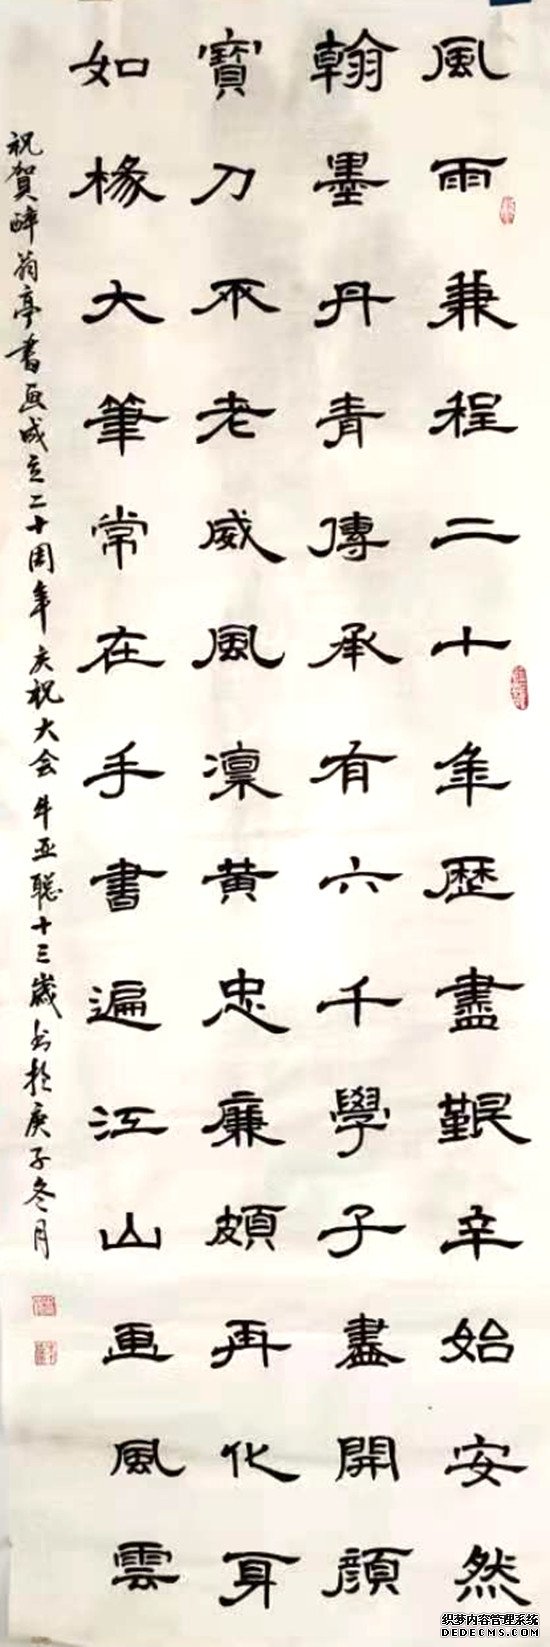 風雨兼程二十年歷盡艱辛始安然
翰墨丹青傳承有六千學子盡開顏
寶刀不老威風凜黃忠廉頗再化身
如椽大筆常在手書遍江山画風雲
祝賀醉翁亭書画成立二十周年庆祝大会 牛亚聪十三歲书於庚子冬月
织梦内容管理系统
DEDECMS.COM